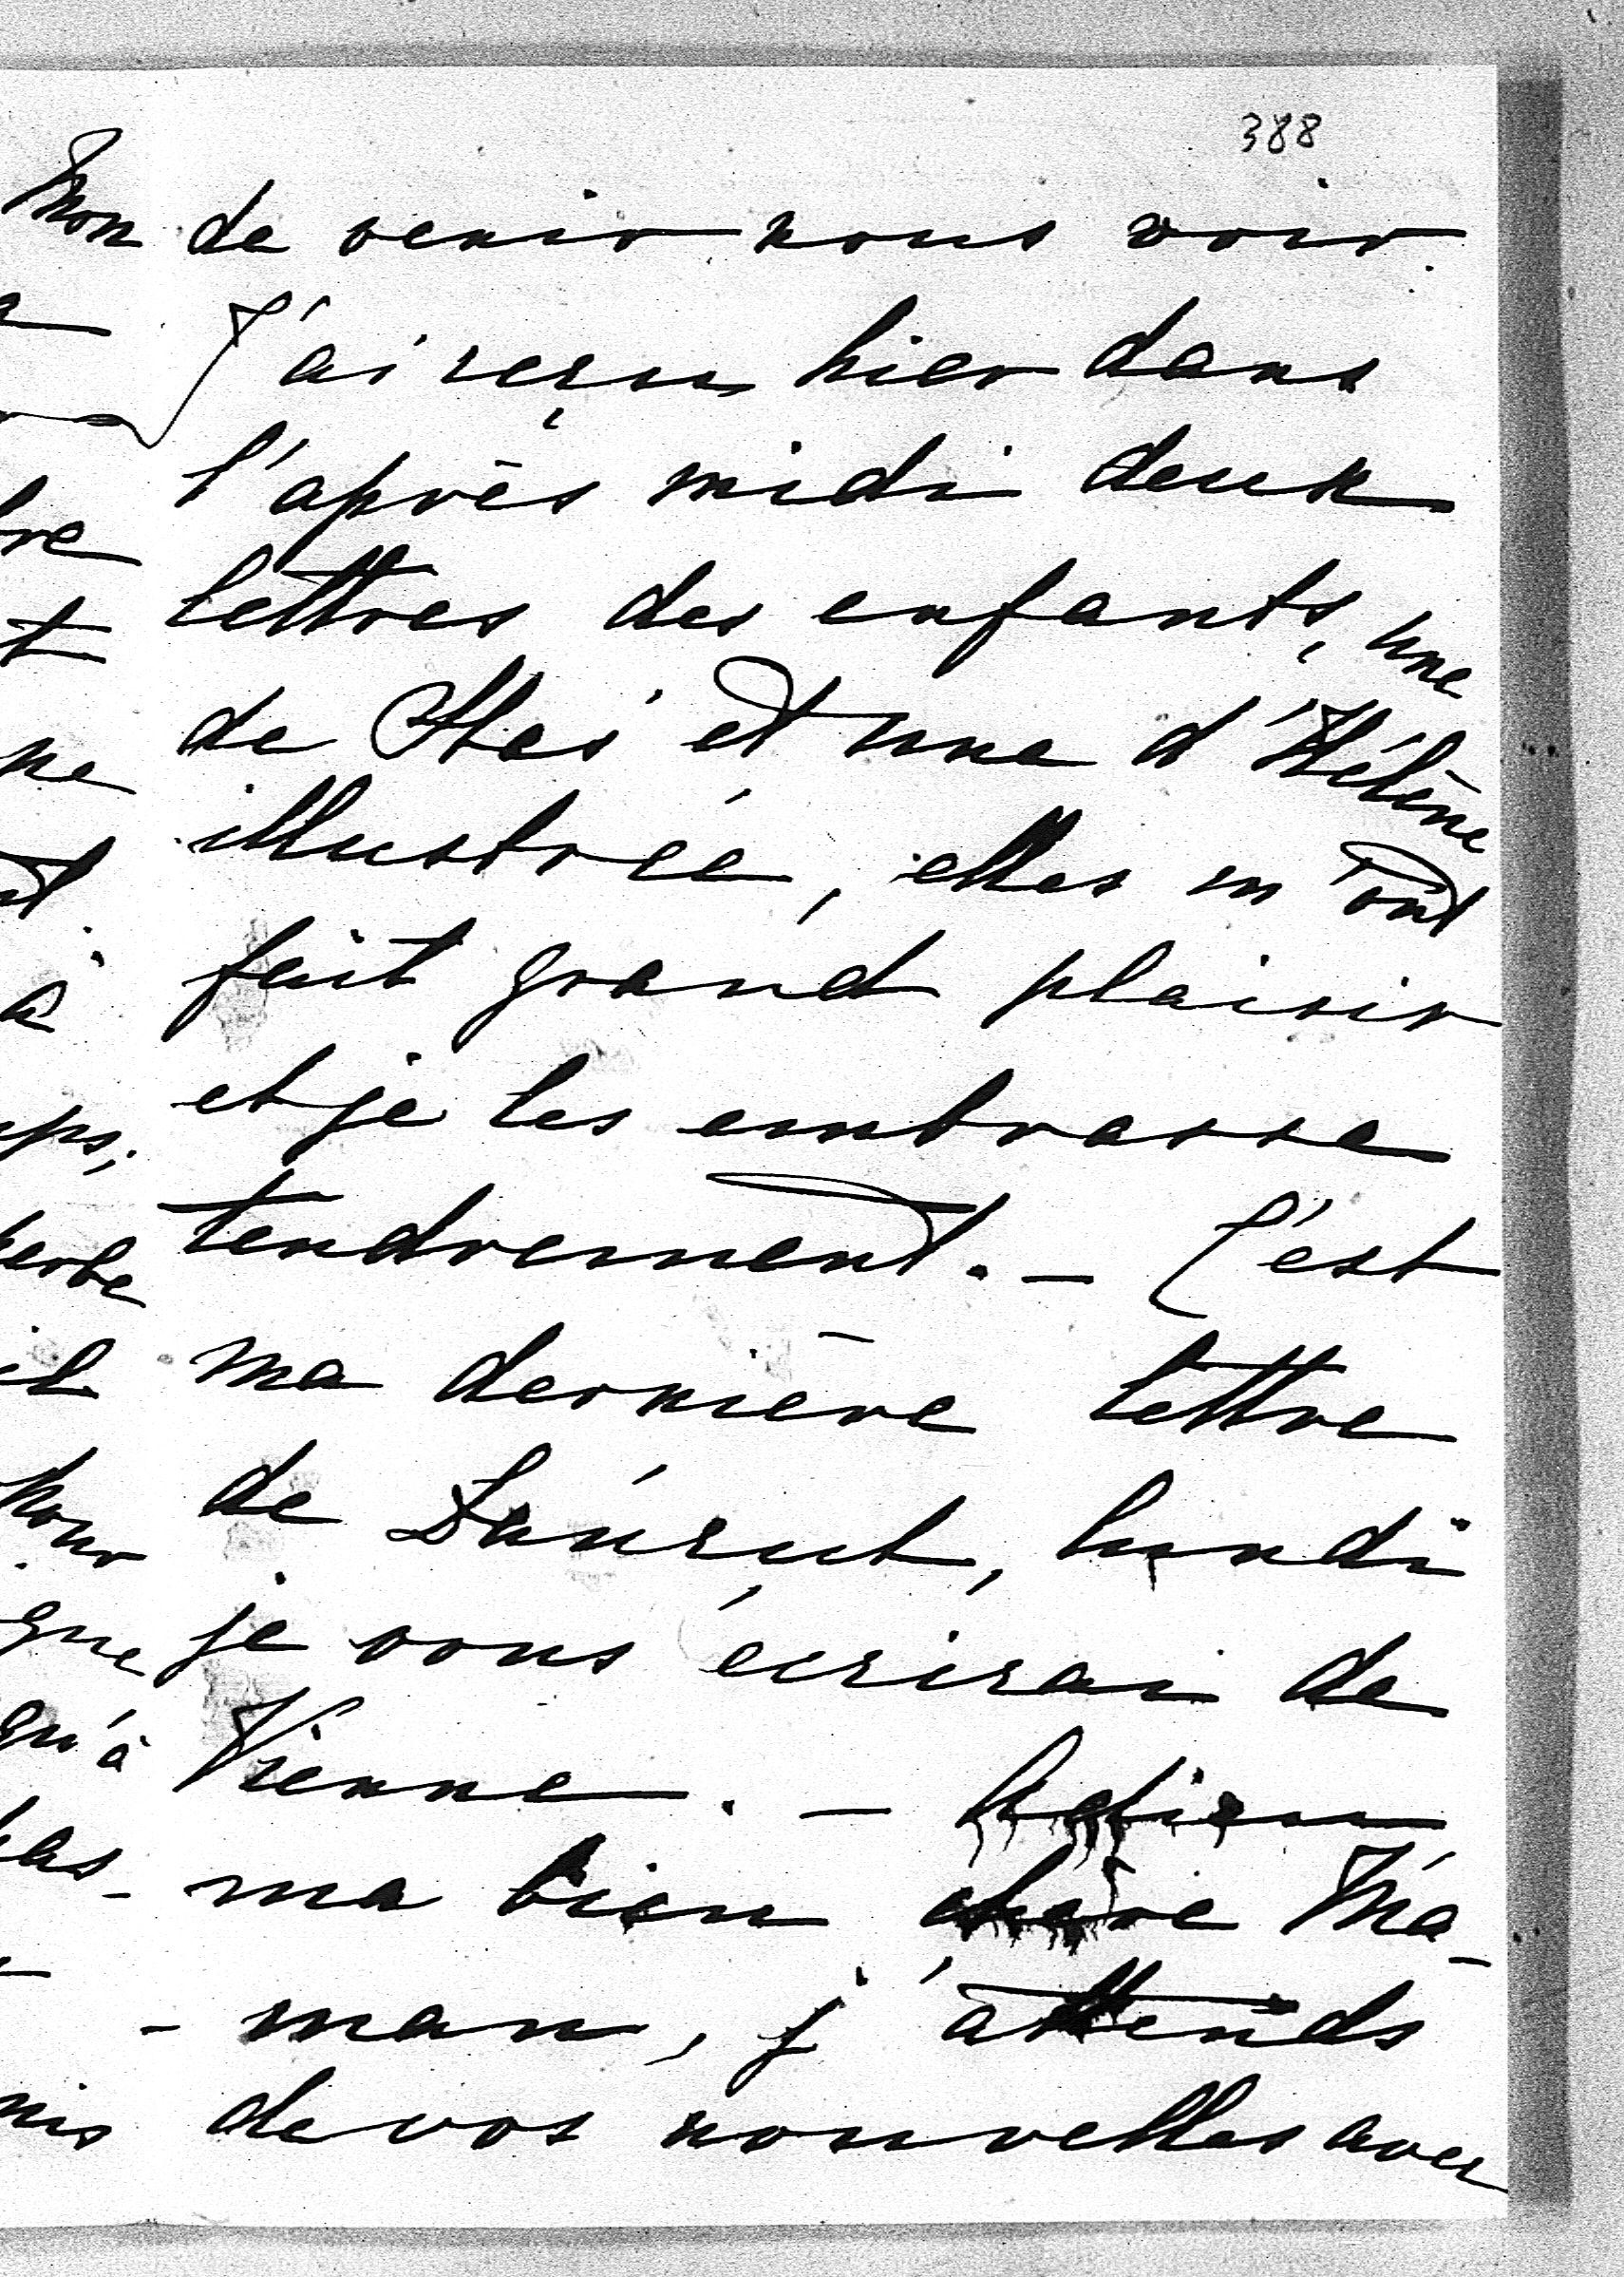 388
de venir nous voir.
J'ai reçu hier dans
l'après midi deux
lettres des enfants, une
de Stas et une d'Hélène
illustrée, elles m'ont
fait grand plaisir
et je les embrasse
tendrement. — C'est
ma dernière lettre
de Łańcut, lundi
je vous écrirai de
Vienne. — Adieu
ma bien chère Ma-
- man, j'attends
de vos nouvelles avec